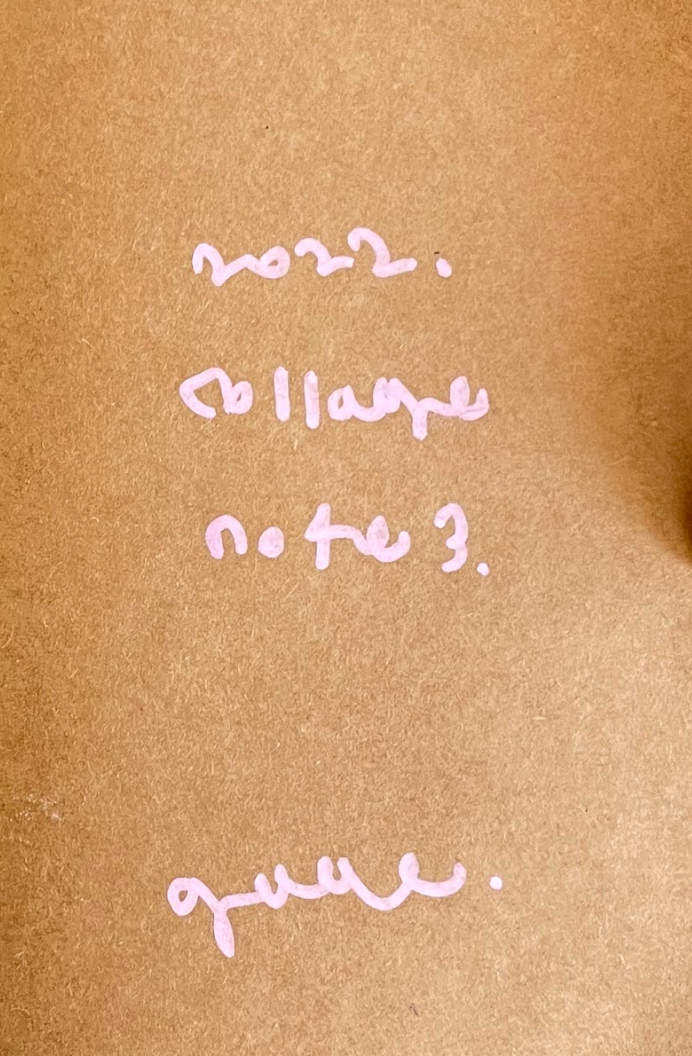 2022.
collage
note 3.